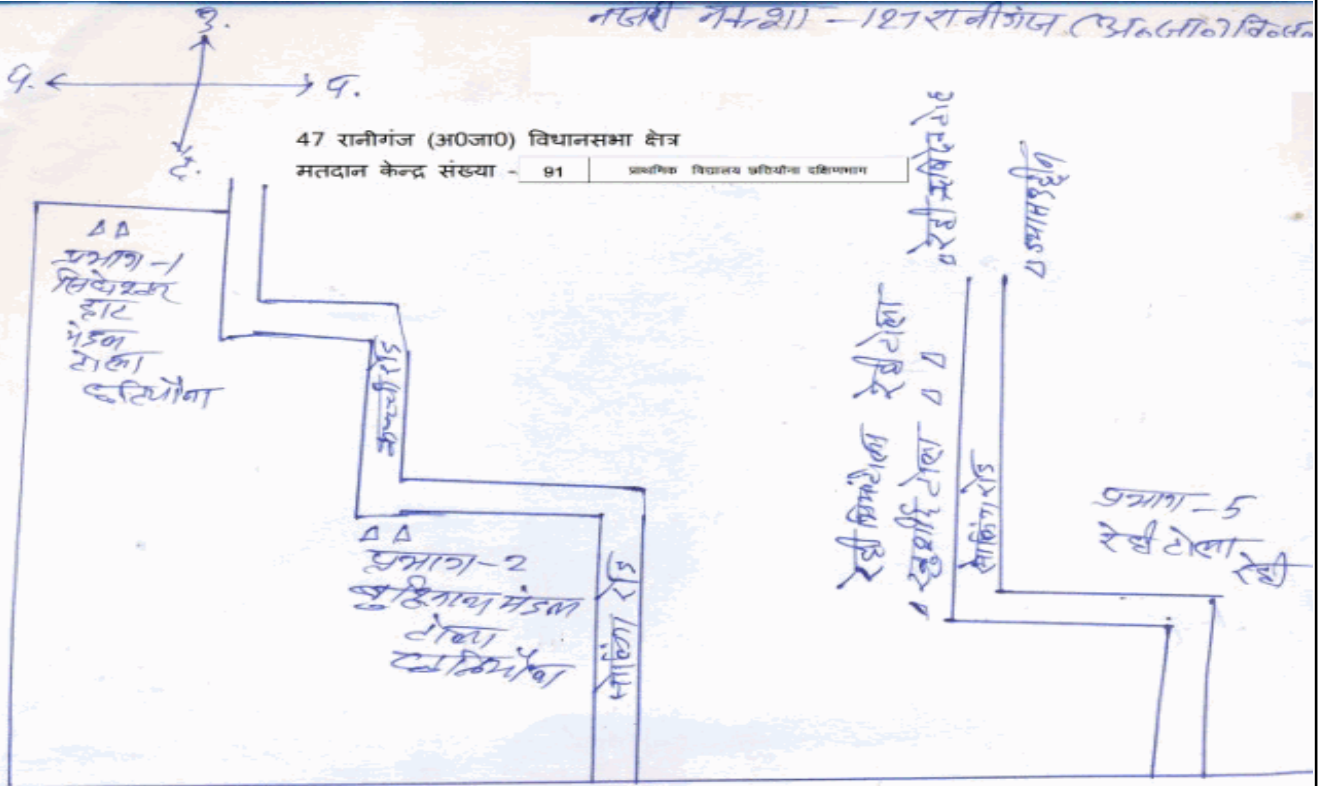 नजरी नक्शा - 127 रानीगंज (अ०जा०) वि०स०
उ.
प. पू.
द.
47 रानीगंज (अ0जा0) विधानसभा क्षेत्र
मतदान केन्द्र संख्या - 91 प्राथमिक विद्यालय छतियौना दक्षिणभाग
प्रभाग-1
हाट
मंडल
टोला
छतियौना
कच्ची रोड
प्रभाग-2
मंडल
टोला
छतियौना
सोलिंग रोड
रेही ऋषिदेव टोल
रेही टोला
खुर्शीद टोला
सोलिंग रोड
प्रभाग-5
रेही टोला
रेही